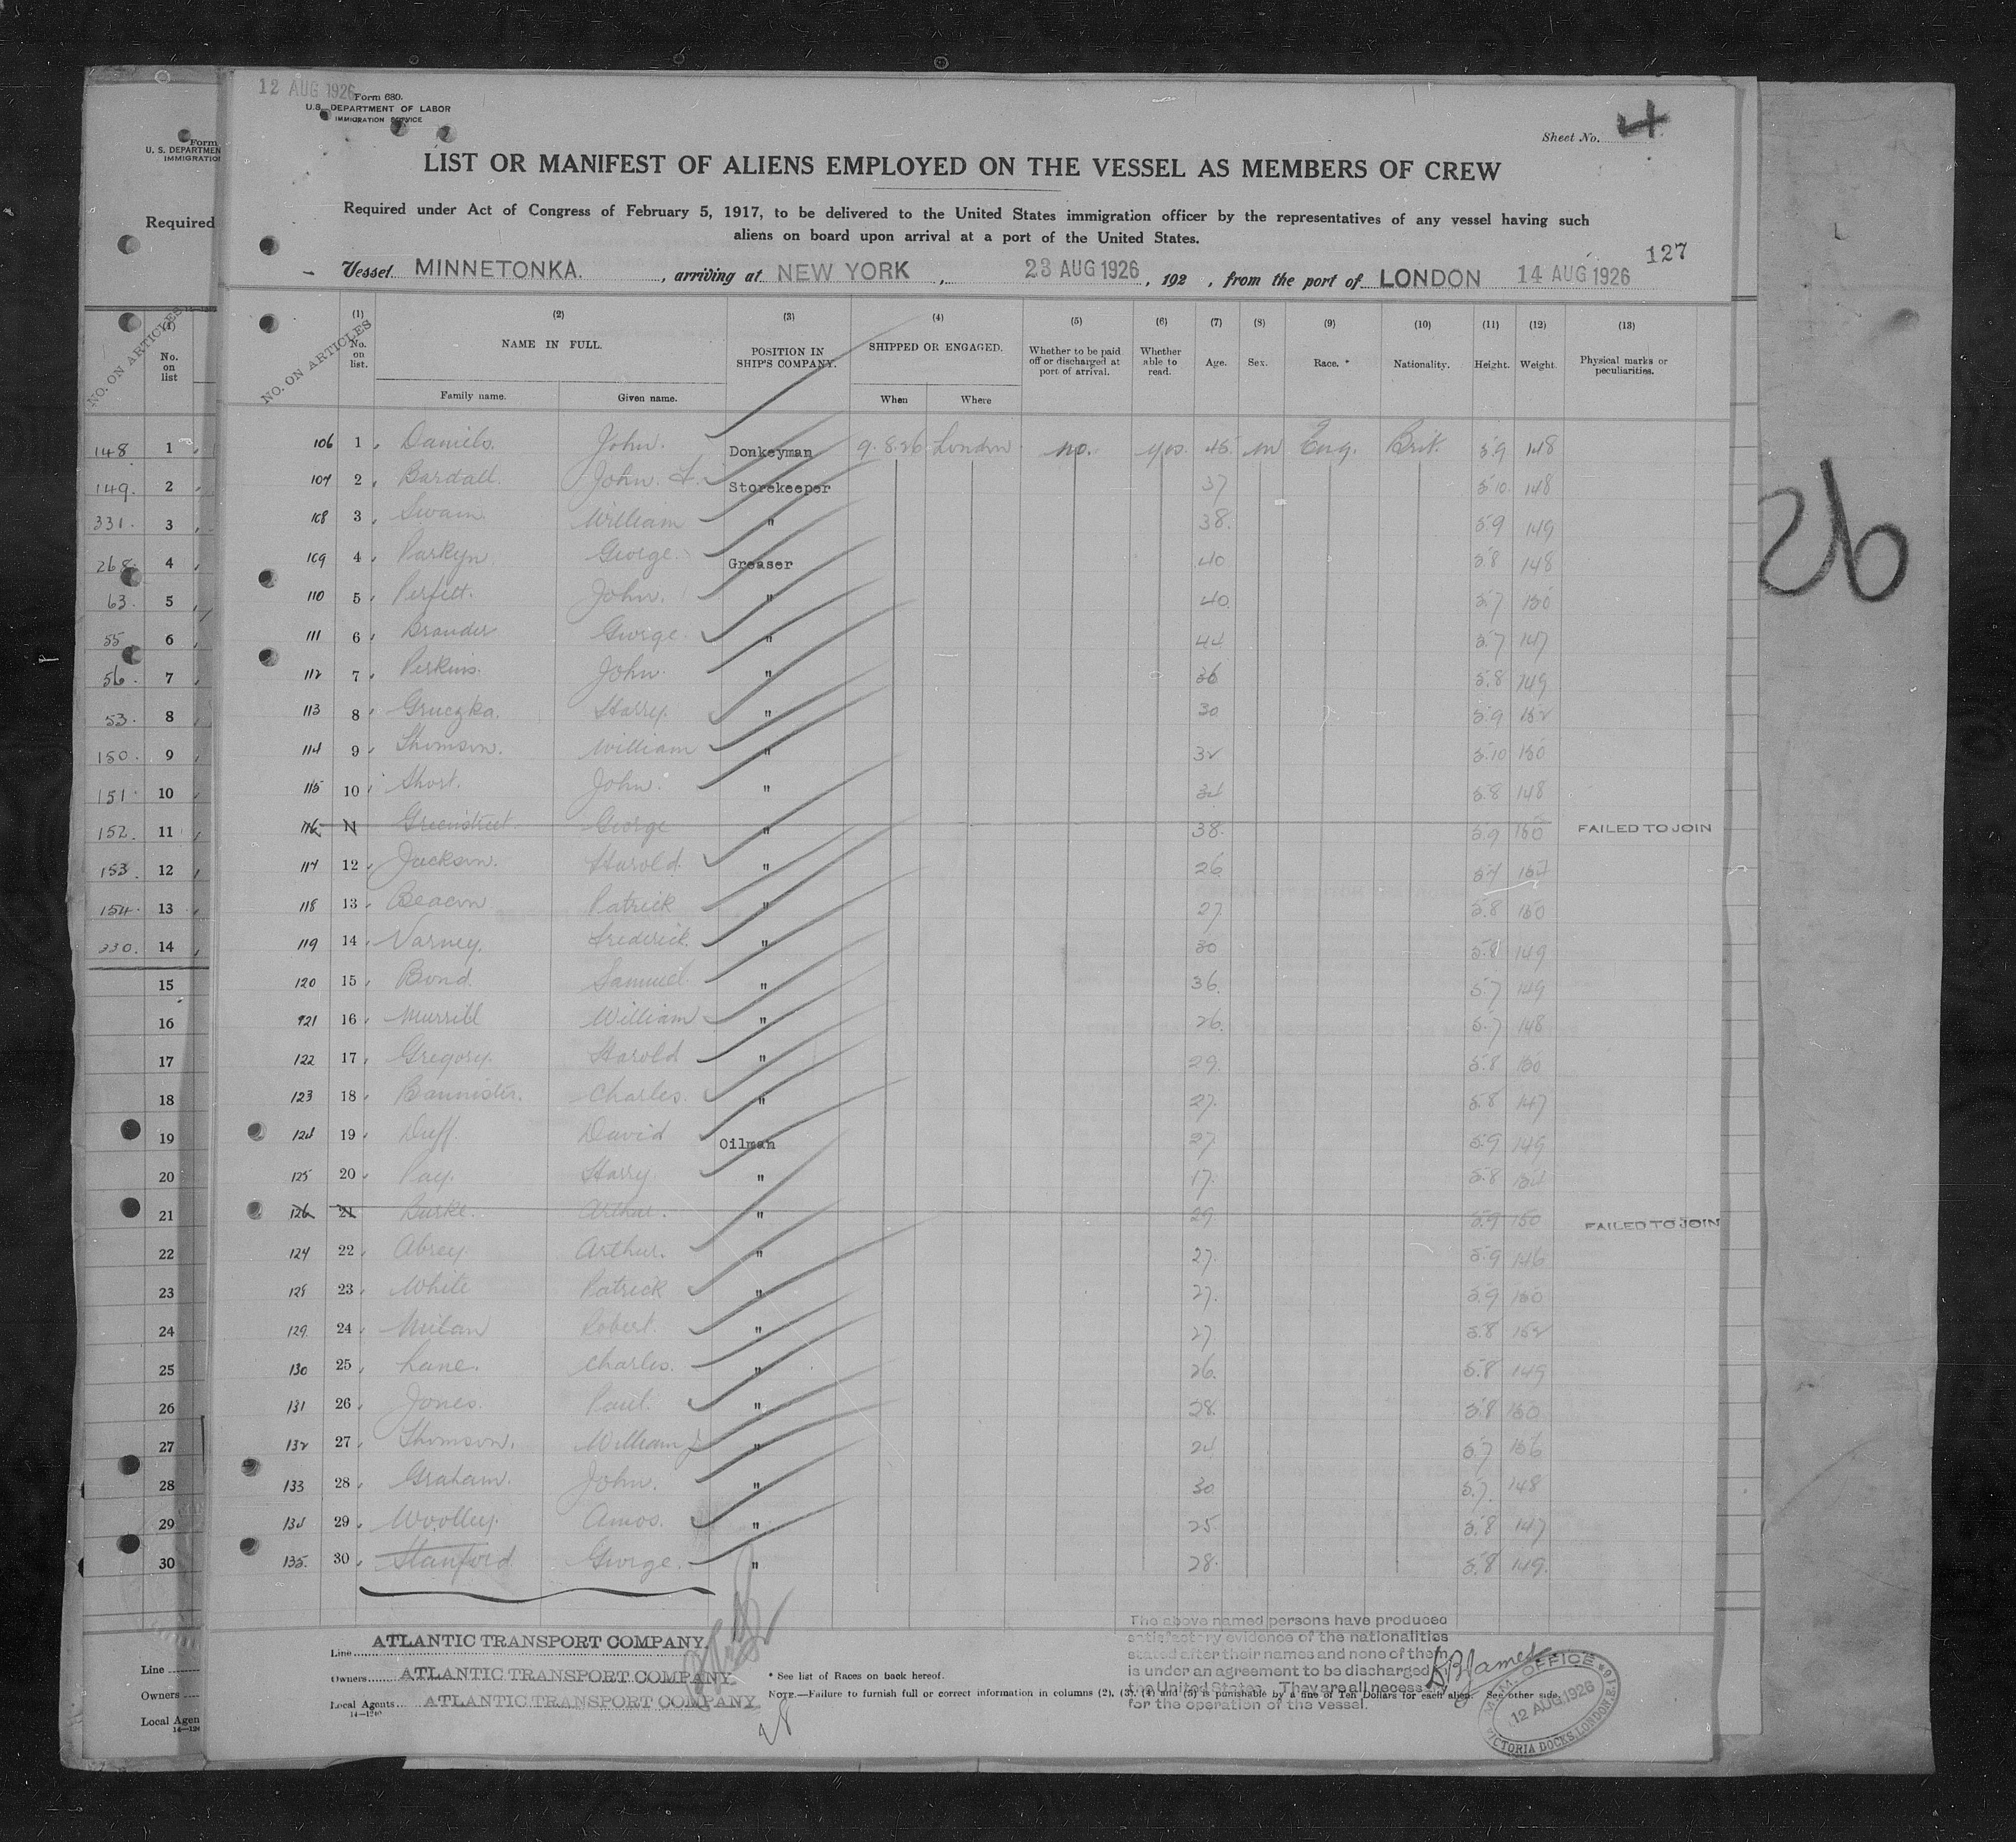 12 AUG 1926
Form 680.
U.S. DEPARTMENT OF LABOR
IMMIGRATION SERVICE
Sheet No. 4
LIST OR MANIFEST OF ALIENS EMPLOYED ON THE VESSEL AS MEMBERS OF CREW
Required under Act of Congress of February 5, 1917, to be delivered to the United States immigration officer by the representatives of any vessel having such
aliens on board upon arrival at a port of the United States.
127
Vessel MINNETONKA. , arriving at NEW YORK , 23 AUG 1926 , 192 , from the port of LONDON 14 AUG 1926
NO. ON ARTICLES
(1) No. on list.
(2) NAME IN FULL. Family name. Given name.
(3) POSITION IN SHIP'S COMPANY.
(4) SHIPPED OR ENGAGED. When Where
(5) Whether to be paid off or discharged at port of arrival.
(6) Whether able to read.
(7) Age.
(8) Sex.
(9) Race. *
(10) Nationality.
(11) Height.
(12) Weight.
(13) Physical marks or peculiarities.
106 1 Daniels. John. Donkeyman 9.8.26 London no. yes. 45 m Eng. Brit. 5.9 148
107 2 Bardall. John. Storekeeper 37 5.10 148
108 3 Swain William " 38. 5.9 149
109 4 Parkyn George. Greaser 40 5.8 148
110 5 Perfitt. John. " 40. 5.7 150
111 6 Brander George. " 44 5.7 147
112 7 Perkins. John. " 36 5.8 149
113 8 Gruczka. Harry. " 30 5.9 152
114 9 Thomson. William " 32 5.10 150
115 10 Short. John. " 34 5.8 148
116 11 Greenstreet. George " 38. 5.9 150 FAILED TO JOIN
117 12 Jackson. Harold. " 26
118 13 Beacon Patrick " 27 5.8 150
119 14 Varney. Frederick. " 30 5.8 149
120 15 Bond. Samuel. " 36. 5.7 149
121 16 Murrill William " 26. 5.7 148
122 17 Gregory. Harold " 29. 5.8 150
123 18 Bannister. Charles. " 27. 5.8 147
124 19 Duff. David Oilman 27. 5.9 149
125 20 Pay. Harry. " 17. 5.8
126 21 Burke. Arthur. " 29 5.9 150 FAILED TO JOIN
127 22 Abrey. Arthur. " 27. 5.9 146
128 23 White Patrick " 27. 5.9 150
129. 24 Milan Robert. " 27 5.8 152
130 25 Lane. Charles. " 26. 5.8 149
131 26 Jones. Paul. " 28. 5.8 150
132 27 Thomson. William J " 24 5.7 156
133 28 Graham. John. " 30 5.7. 148
134 29 Woolley. Amos. " 25. 5.8 147
135. 30 Stanford George. " 28. 5.8 149.
Line ATLANTIC TRANSPORT COMPANY.
Owners ATLANTIC TRANSPORT COMPANY
Local Agents ATLANTIC TRANSPORT COMPANY
14—1240
28
* See list of Races on back hereof.
NOTE.—Failure to furnish full or correct information in columns (2), (3), (4) and (5) is punishable by a fine of Ten Dollars for each alien. See other side.
The above named persons have produced
satisfactory evidence of the nationalities
stated after their names and none of them
is under an agreement to be discharged in
the United States. They are all necessary
for the operation of the vessel.
B James
M.M. OFFICE
12 AUG 1926
VICTORIA DOCKS, LONDON
Form
U. S. DEPARTMEN
IMMIGRATIO
Required
NO. ON ARTICLES
(1) No. on list
148 1
149. 2
331. 3
268. 4
63. 5
55 6
56. 7
53. 8
150. 9
151. 10
152. 11
153. 12
154. 13
330. 14
15
16
17
18
19
20
21
22
23
24
25
26
27
28
29
30
Line
Owners
Local Agen
26